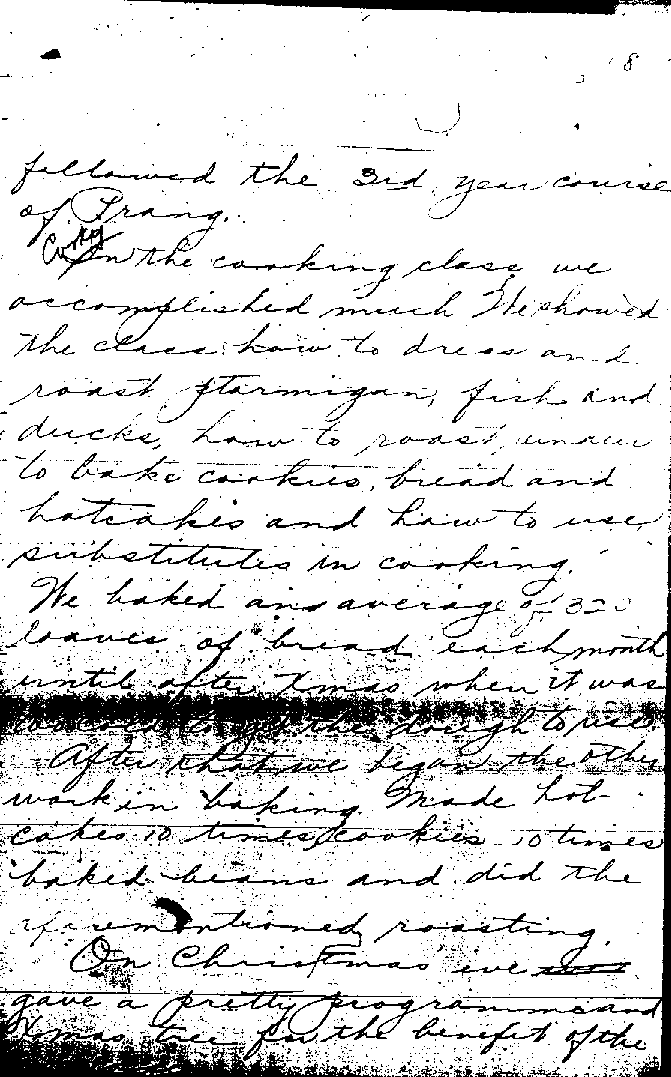 8
followed the 3rd year course
of Prang.
In the cooking class we
accomplished much We showed
the class how to dress and
roast ptarmigan, fish and
ducks, how to roast,
to bake cookies, bread and
hotcakes and how to use
substitutes in cooking.
We baked an average of 320
loaves of bread each month
until after Xmas when it was
too cold to get the dough to rise
After that we began the other
work in baking. Made hot-
cakes 10 times, cookies 10 times
baked beans and did the
aforementioned roasting.
On Christmas eve
gave a pretty programme and
Xmas tree for the benefit of the